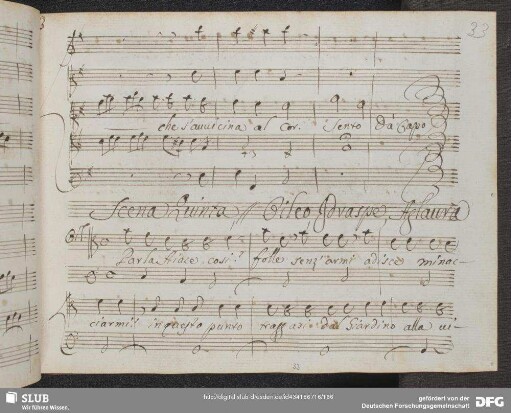 33
che s'avvicina al cor. Sento Da Capo
Scena Quinta // Oileo, Idraspe, Aglaura
Parla Aiace così? folle senz'armi ardisce minac-
ciarmi? in questo punto traffario dal Giardino alla vi-
SLUB
Wir führen Wissen.
http://digital.slub-dresden.de/id434166716/186
gefördert von der
Deutschen Forschungsgemeinschaft
DFG